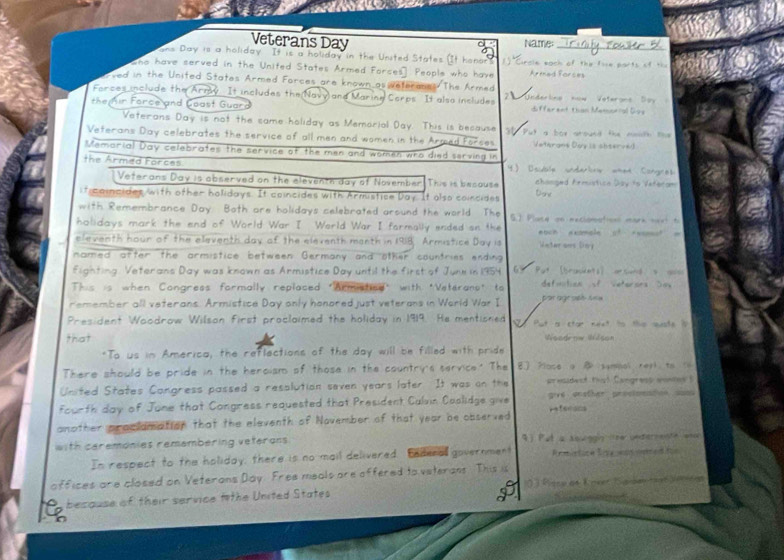 Veterans Day
Name: Trinity
Day is a holiday. It is a holiday in the United States. [It honors
who have served in the United States Armed Forces.] People who have
served in the United States Armed Forces are known as veterans. The Armed
Forces include the Army. It includes the Navy and Marine Corps. It also includes
the Air Force and Coast Guard.
Veterans Day is not the same holiday as Memorial Day. This is because
Veterans Day celebrates the service of all men and women in the Armed Forces.
Memorial Day celebrates the service of the men and women who died serving in
the Armed Forces.
Veterans Day is observed on the eleventh day of November. This is because
it coincides with other holidays. It coincides with Armistice Day. It also coincides
with Remembrance Day. Both are holidays celebrated around the world. The
holidays mark the end of World War I. World War I formally ended on the
eleventh hour of the eleventh day of the eleventh month in 1918. Armistice Day is
named after the armistice between Germany and other countries ending
fighting. Veterans Day was known as Armistice Day until the first of June in 1954.
This is when Congress formally replaced "Armistice" with "Veterans" to
remember all veterans. Armistice Day only honored just veterans in World War I.
President Woodrow Wilson first proclaimed the holiday in 1919. He mentioned
that
"To us in America, the reflections of the day will be filled with pride
There should be pride in the heroism of those in the country's service." The
United States Congress passed a resolution seven years later. It was on the
fourth day of June that Congress requested that President Calvin Coolidge give
another proclamation that the eleventh of November of that year be observed
with ceremonies remembering veterans.
In respect to the holiday, there is no mail delivered. Federal government
offices are closed on Veterans Day. Free meals are offered to veterans. This is
because of their service to the United States.
1.) Circle each of the five parts of the
Armed Forces
2.) Underline how Veterans Day
different than Memorial Day
3.) Put a box around the
Veterans Day is observed
4.) Double underline when Congress
changed Armistice Day to Veterans
Day
5.) Place an exclamation mark next
each example of respect
Veterans Day
6.) Put [brackets] around
definition of veterans Day
paragraph one
Put a star next to the quote
Woodrow Wilson
8.) Place a symbol next to
president that Congress wanted
give another proclamation
veterans
9.) Put a squiggly line underneath
Armistice Day was named for